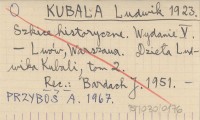 O KUBALA Ludwik 1923.
Szkice historyczne. Wydanie V.
— Lwów, Warszawa. Dzieła Lud-
wika Kubali, tom 2.
Rec.: Bardach J. 1951. —
PRZYBOŚ A. 1967.